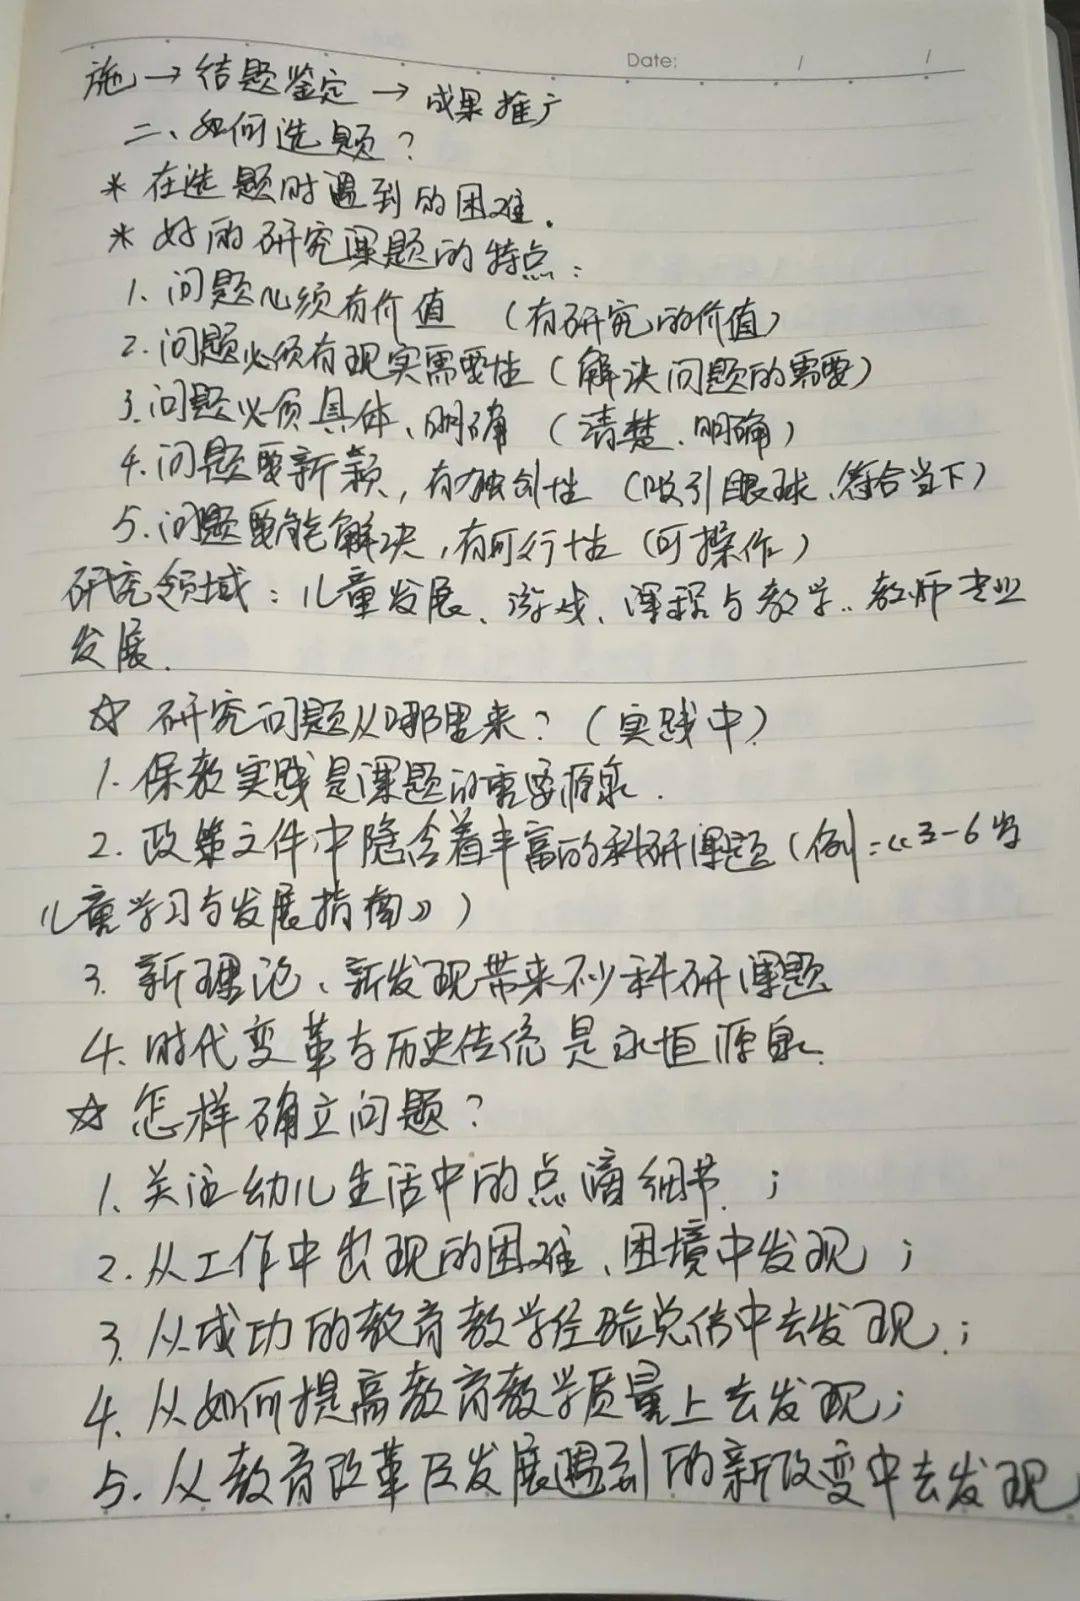 Date: / /
施→结题鉴定→成果推广
二、如何选题?
* 在选题时遇到的困难.
* 好的研究课题的特点:
1. 问题必须有价值 (有研究的价值)
2. 问题必须有现实需要性 (解决问题的需要)
3. 问题必须具体、明确 (清楚、明确)
4. 问题要新颖, 有独创性 (吸引眼球、符合当下)
5. 问题要能解决, 有可行性 (可操作)
研究领域: 儿童发展、游戏、课程与教学、教师专业
发展.
☆ 研究问题从哪里来? (实践中)
1. 保教实践是课题的重要源泉.
2. 政策文件中隐含着丰富的科研课题 (例:《3-6岁
儿童学习与发展指南》)
3. 新理论、新发现带来不少科研课题
4. 时代变革与历史传统是永恒源泉.
☆ 怎样确立问题?
1. 关注幼儿生活中的点滴细节;
2. 从工作中出现的困难、困境中发现;
3. 从成功的教育教学经验总结中去发现;
4. 从如何提高教育教学质量上去发现;
5. 从教育改革及发展遇到的新改变中去发现